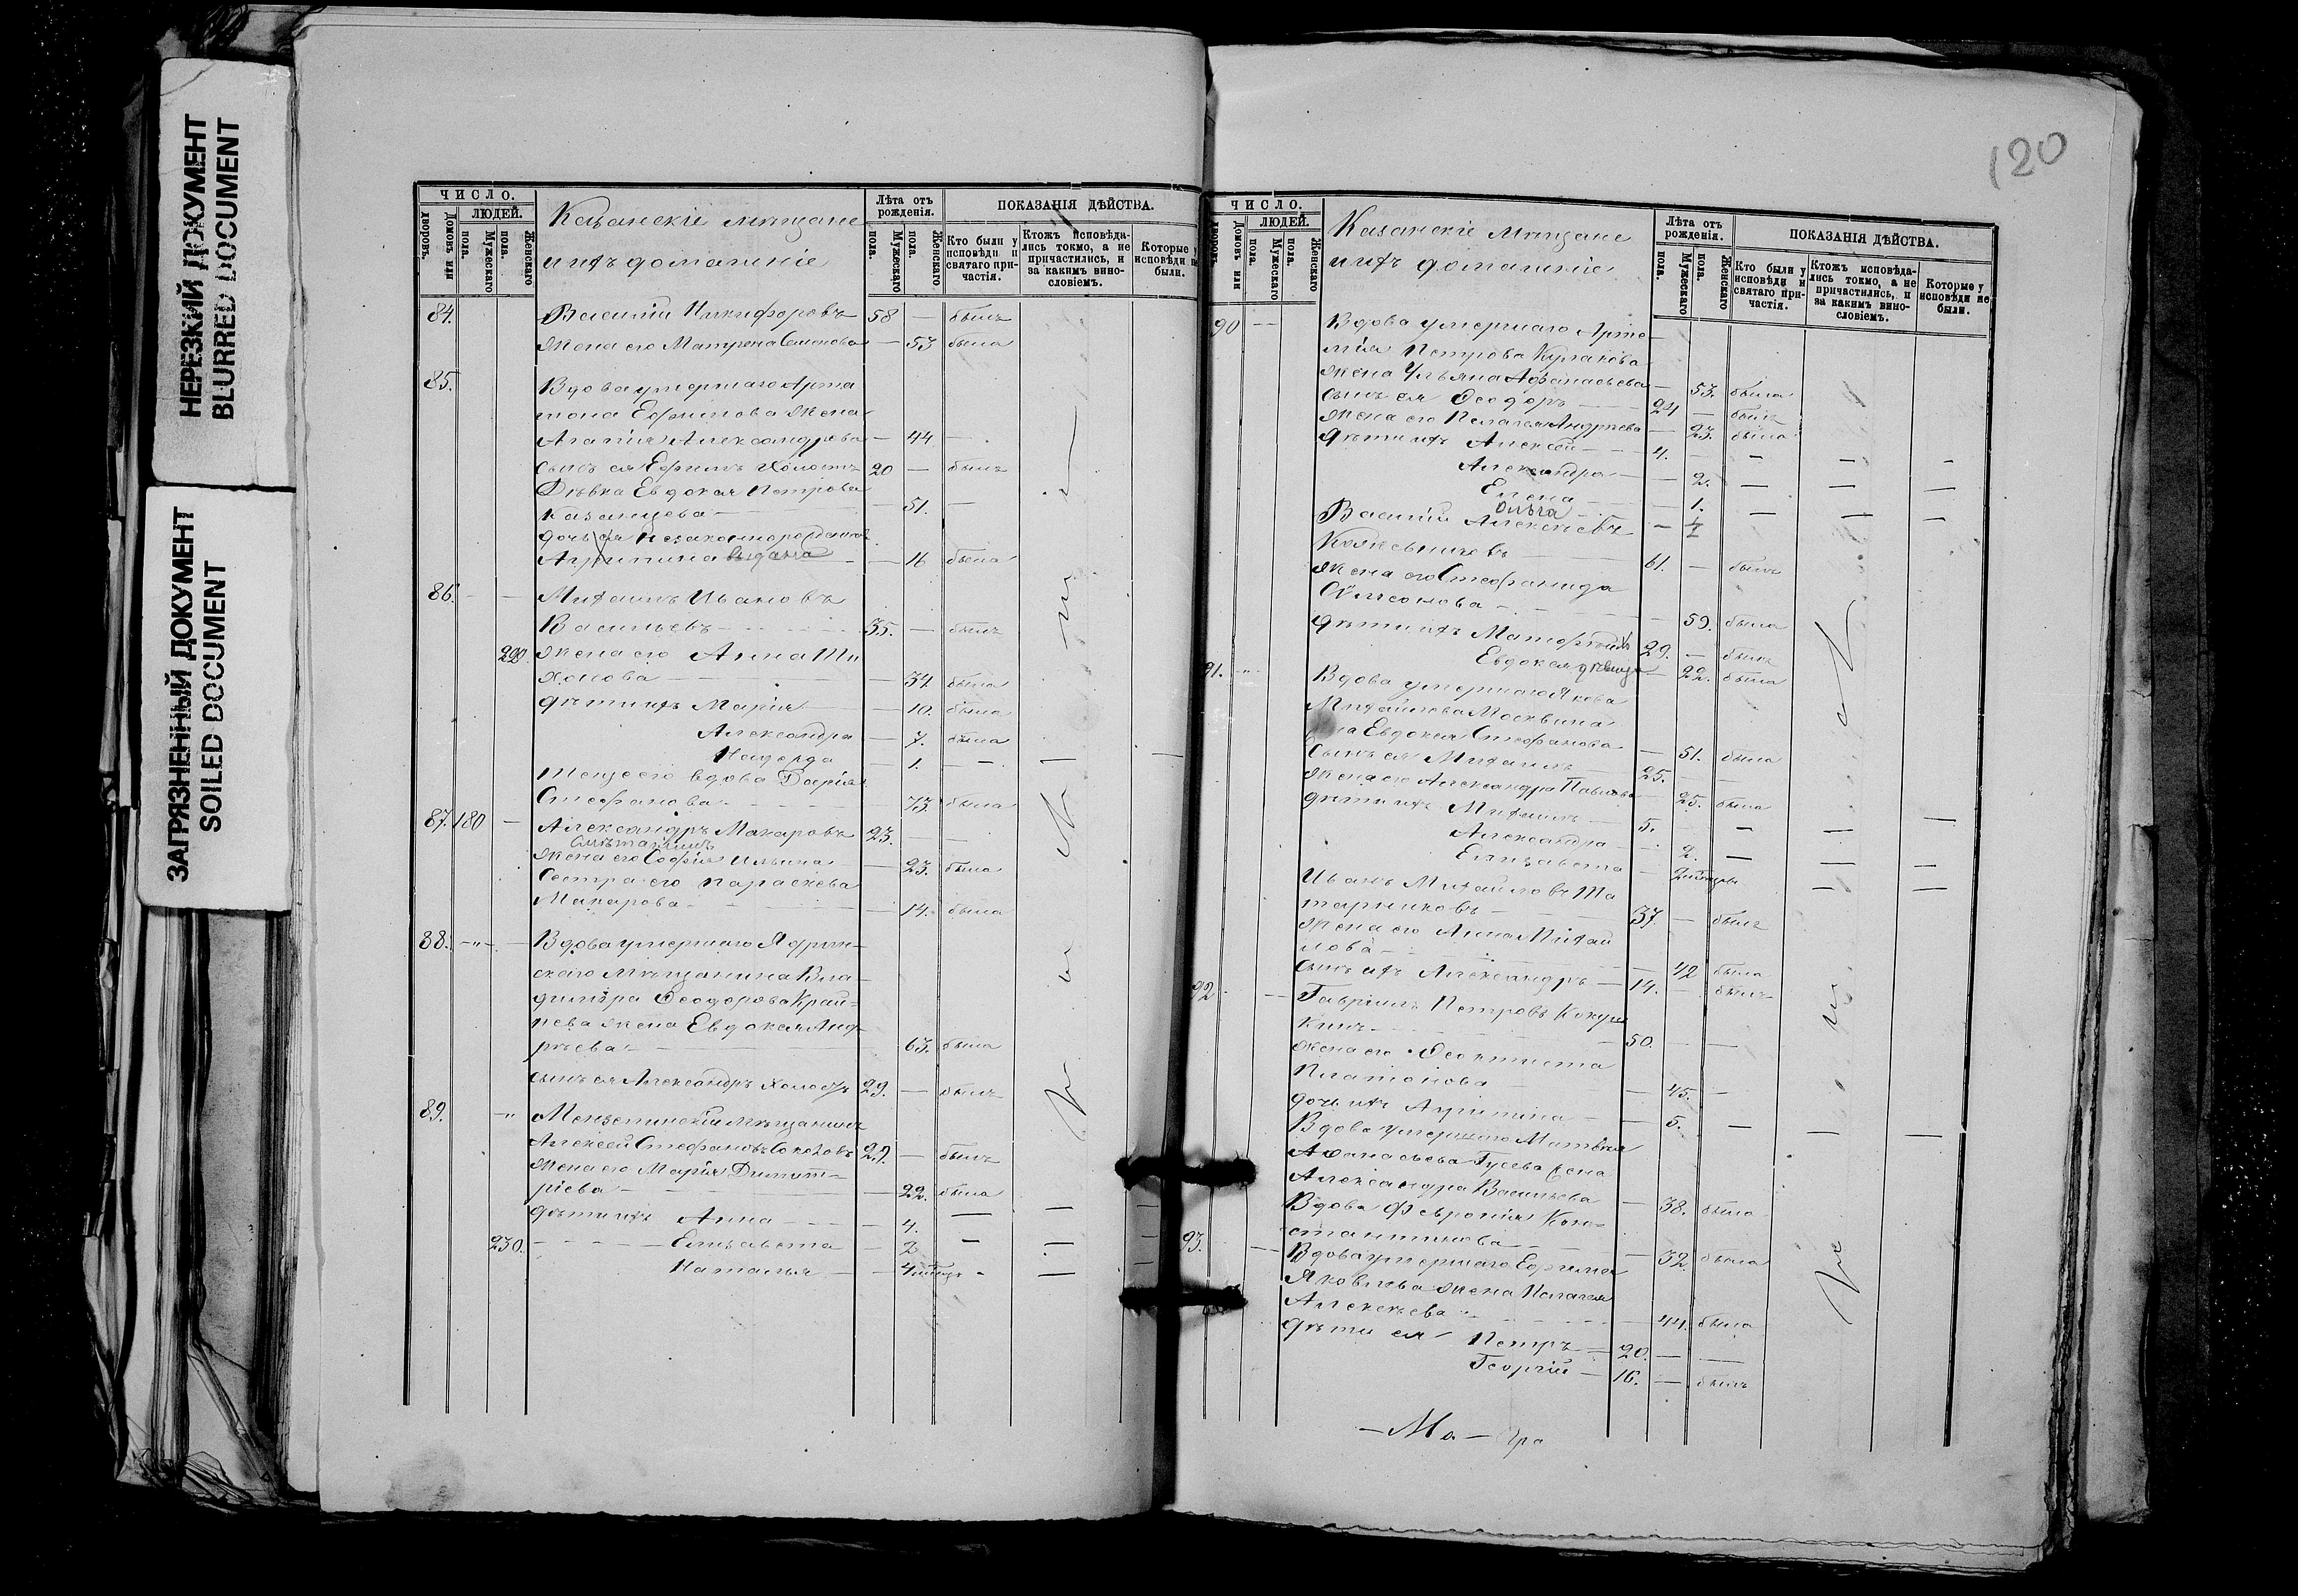 НЕРЕЗКИЙ ДОКУМЕНТ
BLURRED DOCUMENT
ЗАГРЯЗНЕННЫЙ ДОКУМЕНТ
SOILED DOCUMENT
ЧИСЛО.
ЛЮДЕЙ.
Домовъ или дворовъ.
Мужескаго пола.
Женскаго пола.
Казанскіе мѣщане
и ихъ домашніе
Лѣта отъ рожденія.
Мужескаго пола.
Женскаго пола.
ПОКАЗАНІЯ ДѢЙСТВА.
Кто были у исповѣди и святаго причастія.
Ктожъ исповѣдались токмо, а не причастились, и за какимъ винословіемъ.
Которые у исповѣди не были.
84. Василій Никифоровъ 58 — былъ
Жена его Матрена Семенова — 53 была
85. Вдова умершаго Арта
мона Ефимова жена
Агапія Александрова — 44 —
Сынъ ея Ефимъ холостъ 20 — былъ
Дѣвка Евдокія Петрова
Казанцева — 51. —
дочь ея незаконнорожденная
Агрипина выдана — 16 была
86. Михаилъ Ивановъ
Васильевъ 35. — былъ
229. Жена его Анна Ти
хонова — 34 была
дѣти ихъ Марія — 10. была
Александра — 7. была
Надежда — 1. —
Теща его вдова Дарія
Стефанова 73. была
87. 180 — Александръ Макаровъ 23. —
Смѣтанинъ
Жена его Софія Ильина — 23. была
Сестра его Параскева
Макарова — 14. была
88. Вдова умершаго Ядрин-
скаго мѣщанина Вла-
диміра Ѳеодорова Край-
нева жена Евдокія Анд-
реева 63. была
Сынъ ея Александръ холостъ 29. — былъ
89. Мензелинскій мѣщанинъ
Алексей Стефановъ Соколовъ 29. — былъ
Жена его Марія Димит-
ріева — 22. была
дѣти ихъ Анна — 4. —
230. Елизавета — 2 —
Наталья —
120
ЧИСЛО.
ЛЮДЕЙ.
Домовъ или дворовъ.
Мужескаго пола.
Женскаго пола.
Казанскіе мѣщане
и ихъ домашніе
Лѣта отъ рожденія.
Мужескаго пола.
Женскаго пола.
ПОКАЗАНІЯ ДѢЙСТВА.
Кто были у исповѣди и святаго причастія.
Ктожъ исповѣдались токмо, а не причастились, и за какимъ винословіемъ.
Которые у исповѣди не были.
90 Вдова умершаго Арте-
мія Петрова Кулакова
жена Ульяна Афанасьева — 53. была
сынъ ея Ѳеодоръ 24 — былъ
Жена его Пелагея Андреева — 23. была
дѣти ихъ Алексей 4. —
Александра — 2. —
Елена — 1. —
Ольга
Василій Алексѣевъ
61. — былъ
Жена его Стефанида
Симеонова — 59. была
дѣти ихъ 29. — былъ
Евдокія дѣвица — 22. была
91. Вдова умершаго Якова
Михайлова Москвина
Евдокія Стефанова — 51. была
Сынъ ея Михаилъ 25. —
Жена его Александра Павлова — 25. была
дѣти ихъ Михаилъ 5. —
Александра — 2. —
Елизавета —
Иванъ Михайловъ Та
тарниковъ 37. — былъ
Жена его Анна Михай
лова — 42 была
Сынъ ихъ Александръ — 14. — былъ
92 Гавріилъ Петровъ
50. —
Жена его Ѳеоктиста
Платонова — 45. —
дочь ихъ Агрипина — 5. —
Вдова умершаго Матвѣя
Афанасьева Гусева жена
Александра Васильева — 38. была
Вдова Февронія Кон-
стантинова — 32. была
93. Вдова умершаго Ефима
Яковлева жена Пелагея
Алексѣева — 44. была
дѣти ея Петръ — 20. —
Георгій — 16. — былъ